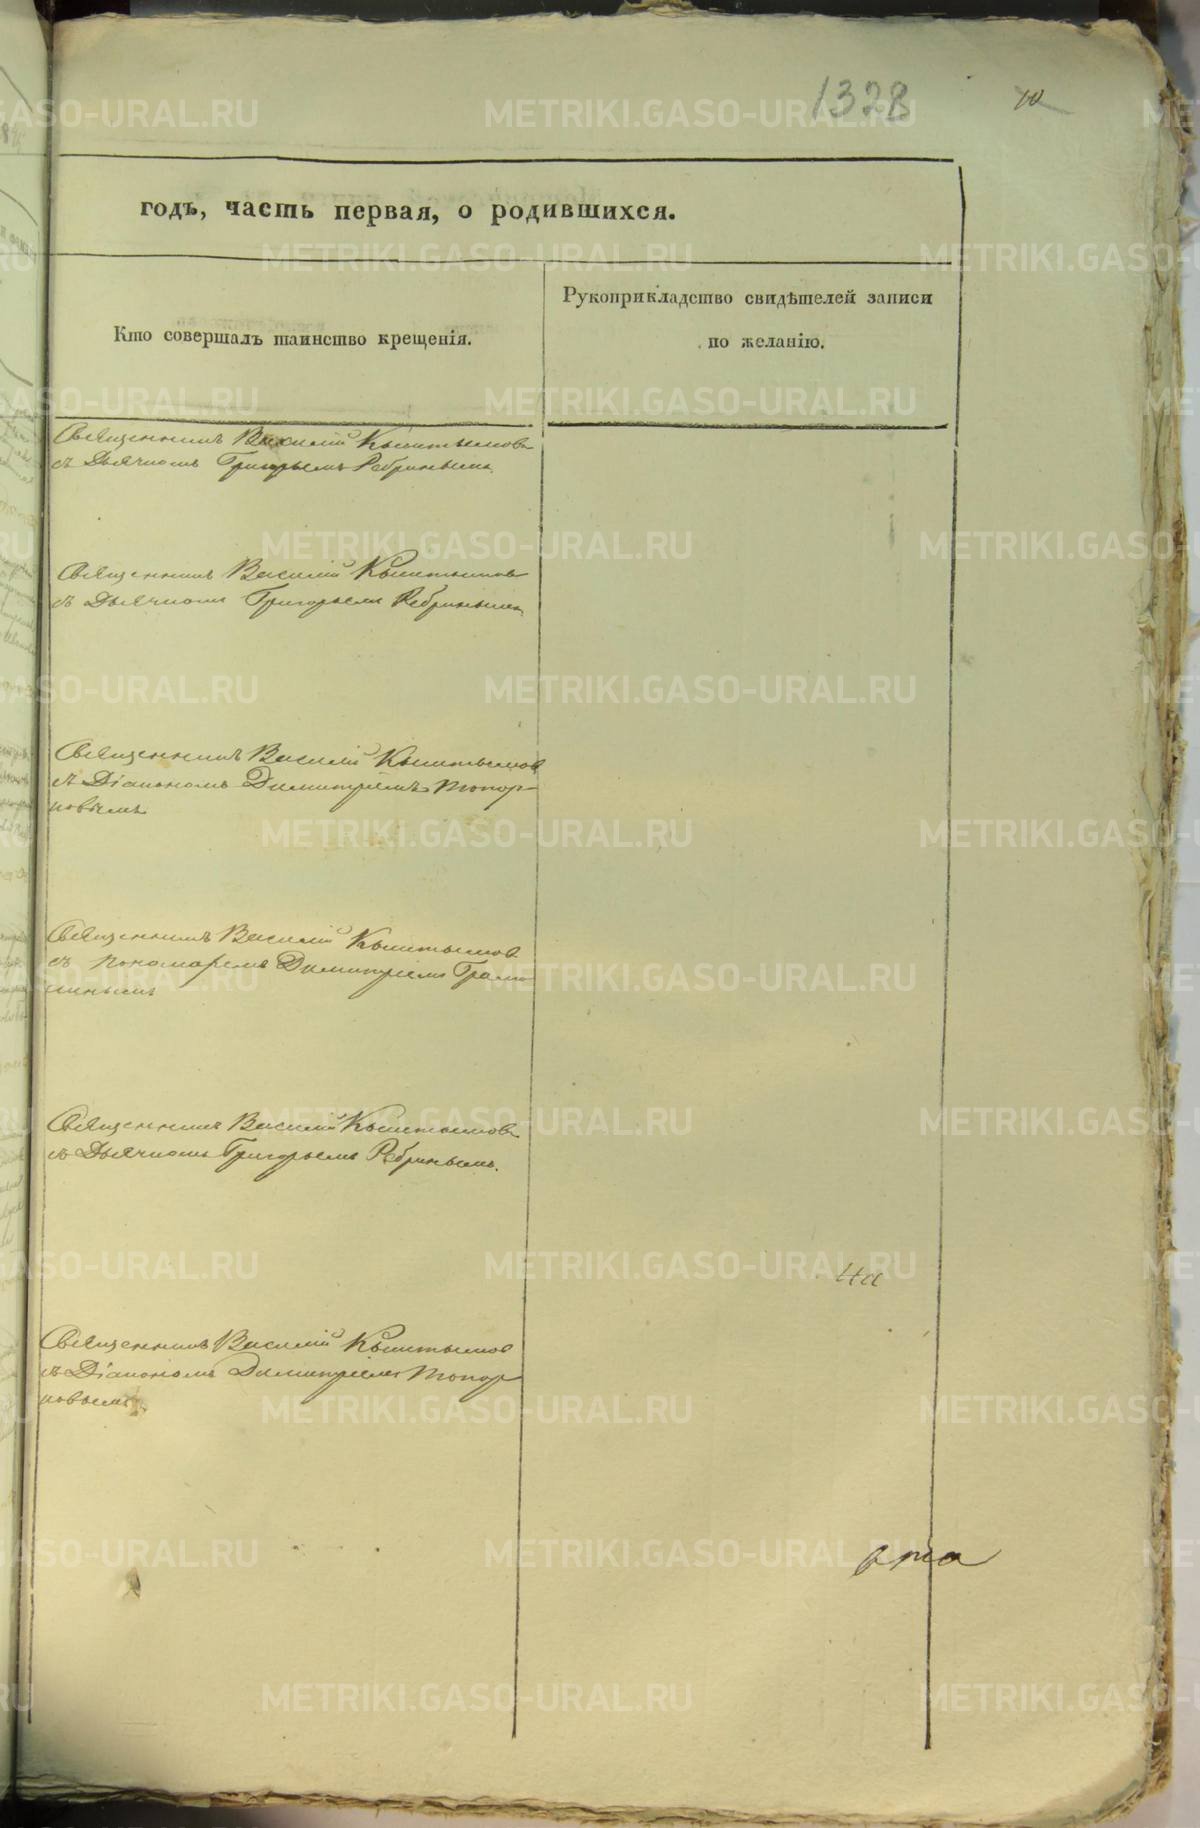 1328
10
годъ, часть первая, о родившихся.
Кто совершалъ таинство крещенія.
Рукоприкладство свидѣтелей записи
по желанію.
Священникъ Василій Кыштымовъ
съ Дьячкомъ Григорьемъ Ребринымъ
Священникъ Василій Кыштымовъ
съ Дьячкомъ Григорьемъ Ребринымъ
Священникъ Василій Кыштымовъ
съ Діакономъ Димитріемъ Топор-
ковымъ
Священникъ Василій Кыштымовъ
съ пономаремъ Димитріемъ
Священникъ Василій Кыштымовъ
съ Дьячкомъ Григорьемъ Ребринымъ.
на
Священникъ Василій Кыштымовъ
съ Діакономъ Димитріемъ Топор
ковымъ.
METRIKI.GASO-URAL.RU